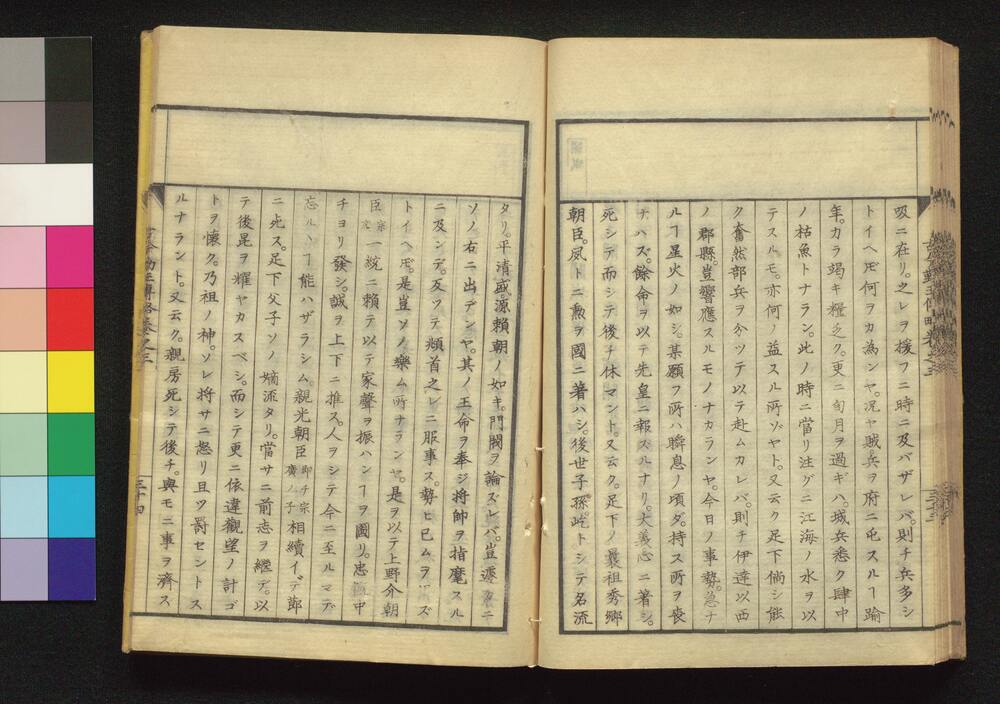 吸ニ在リ。之レヲ援フニ時ニ及バザレバ。則チ兵多シ
トイヘ𪜈何ヲカ為ンヤ。况ヤ賊兵ヲ府ニ屯スルヿ踰
年。カラ竭キ糧乏ク。更ニ旬月ヲ過ギハ。城兵悉ク肆中
ノ枯魚トナラン。此ノ時ニ當リ注グニ江海ノ水ヲ以
テスルモ。亦何ノ益スル所ゾヤト。又云ク足下倘シ能
ク奮然部兵ヲ分ツテ以テ赴ムカレバ。則チ伊達以西
ノ郡縣。豈響應スルモノナカランヤ。今日ノ事勢。急ナ
ルヿ星火ノ如シ。某願フ所ハ瞬息ノ頃ダ。持ス所ヲ喪
ナハズ。餘命ヲ以テ先皇ニ報ズルナリ。大義心ニ著シ。
死シテ而シテ後チ休マント。又云ク。足下ノ曩祖秀郷
朝臣。夙トニ勲ヲ國ニ著ハシ。後世子孫。屹トシテ名流
タリ。平清盛源頼朝ノ如キ。門閥ヲ論ズレバ。豈遽カニ
ソノ右ニ出デンヤ。其ノ王命ヲ奉ジ将帥ヲ指麾スル
ニ及ンデ。反ツテ頫首之レニ服事ス。勢ヒ已ムヲ ズ
トイヘ𪜈。是豈ソノ樂ム所ナランヤ。是ヲ以テ上野介朝
臣宗広一統ニ頼テ以テ家聲ヲ振ハンヿヲ圖リ。忠 中
チヨリ發シ。誠ヲ上下ニ推ス。人ヲシテ今ニ至ルマデ
忘ルヽヿ能ハザラシム。親光朝臣即チ宗廣ノ子相續イデ節
ニ死ス。足下父子ソノ嫡流タリ。當サニ前志ヲ繼デ。以
テ後昆ヲ耀ヤカスベシ。而シテ更ニ依違觀望ノ計ゴ
トヲ懐ク。乃祖ノ神。ソレ将サニ怒リ且ツ罰セントス
ルナラント。又云ク。親房死シテ後チ。與モニ事ヲ濟ス
三十四